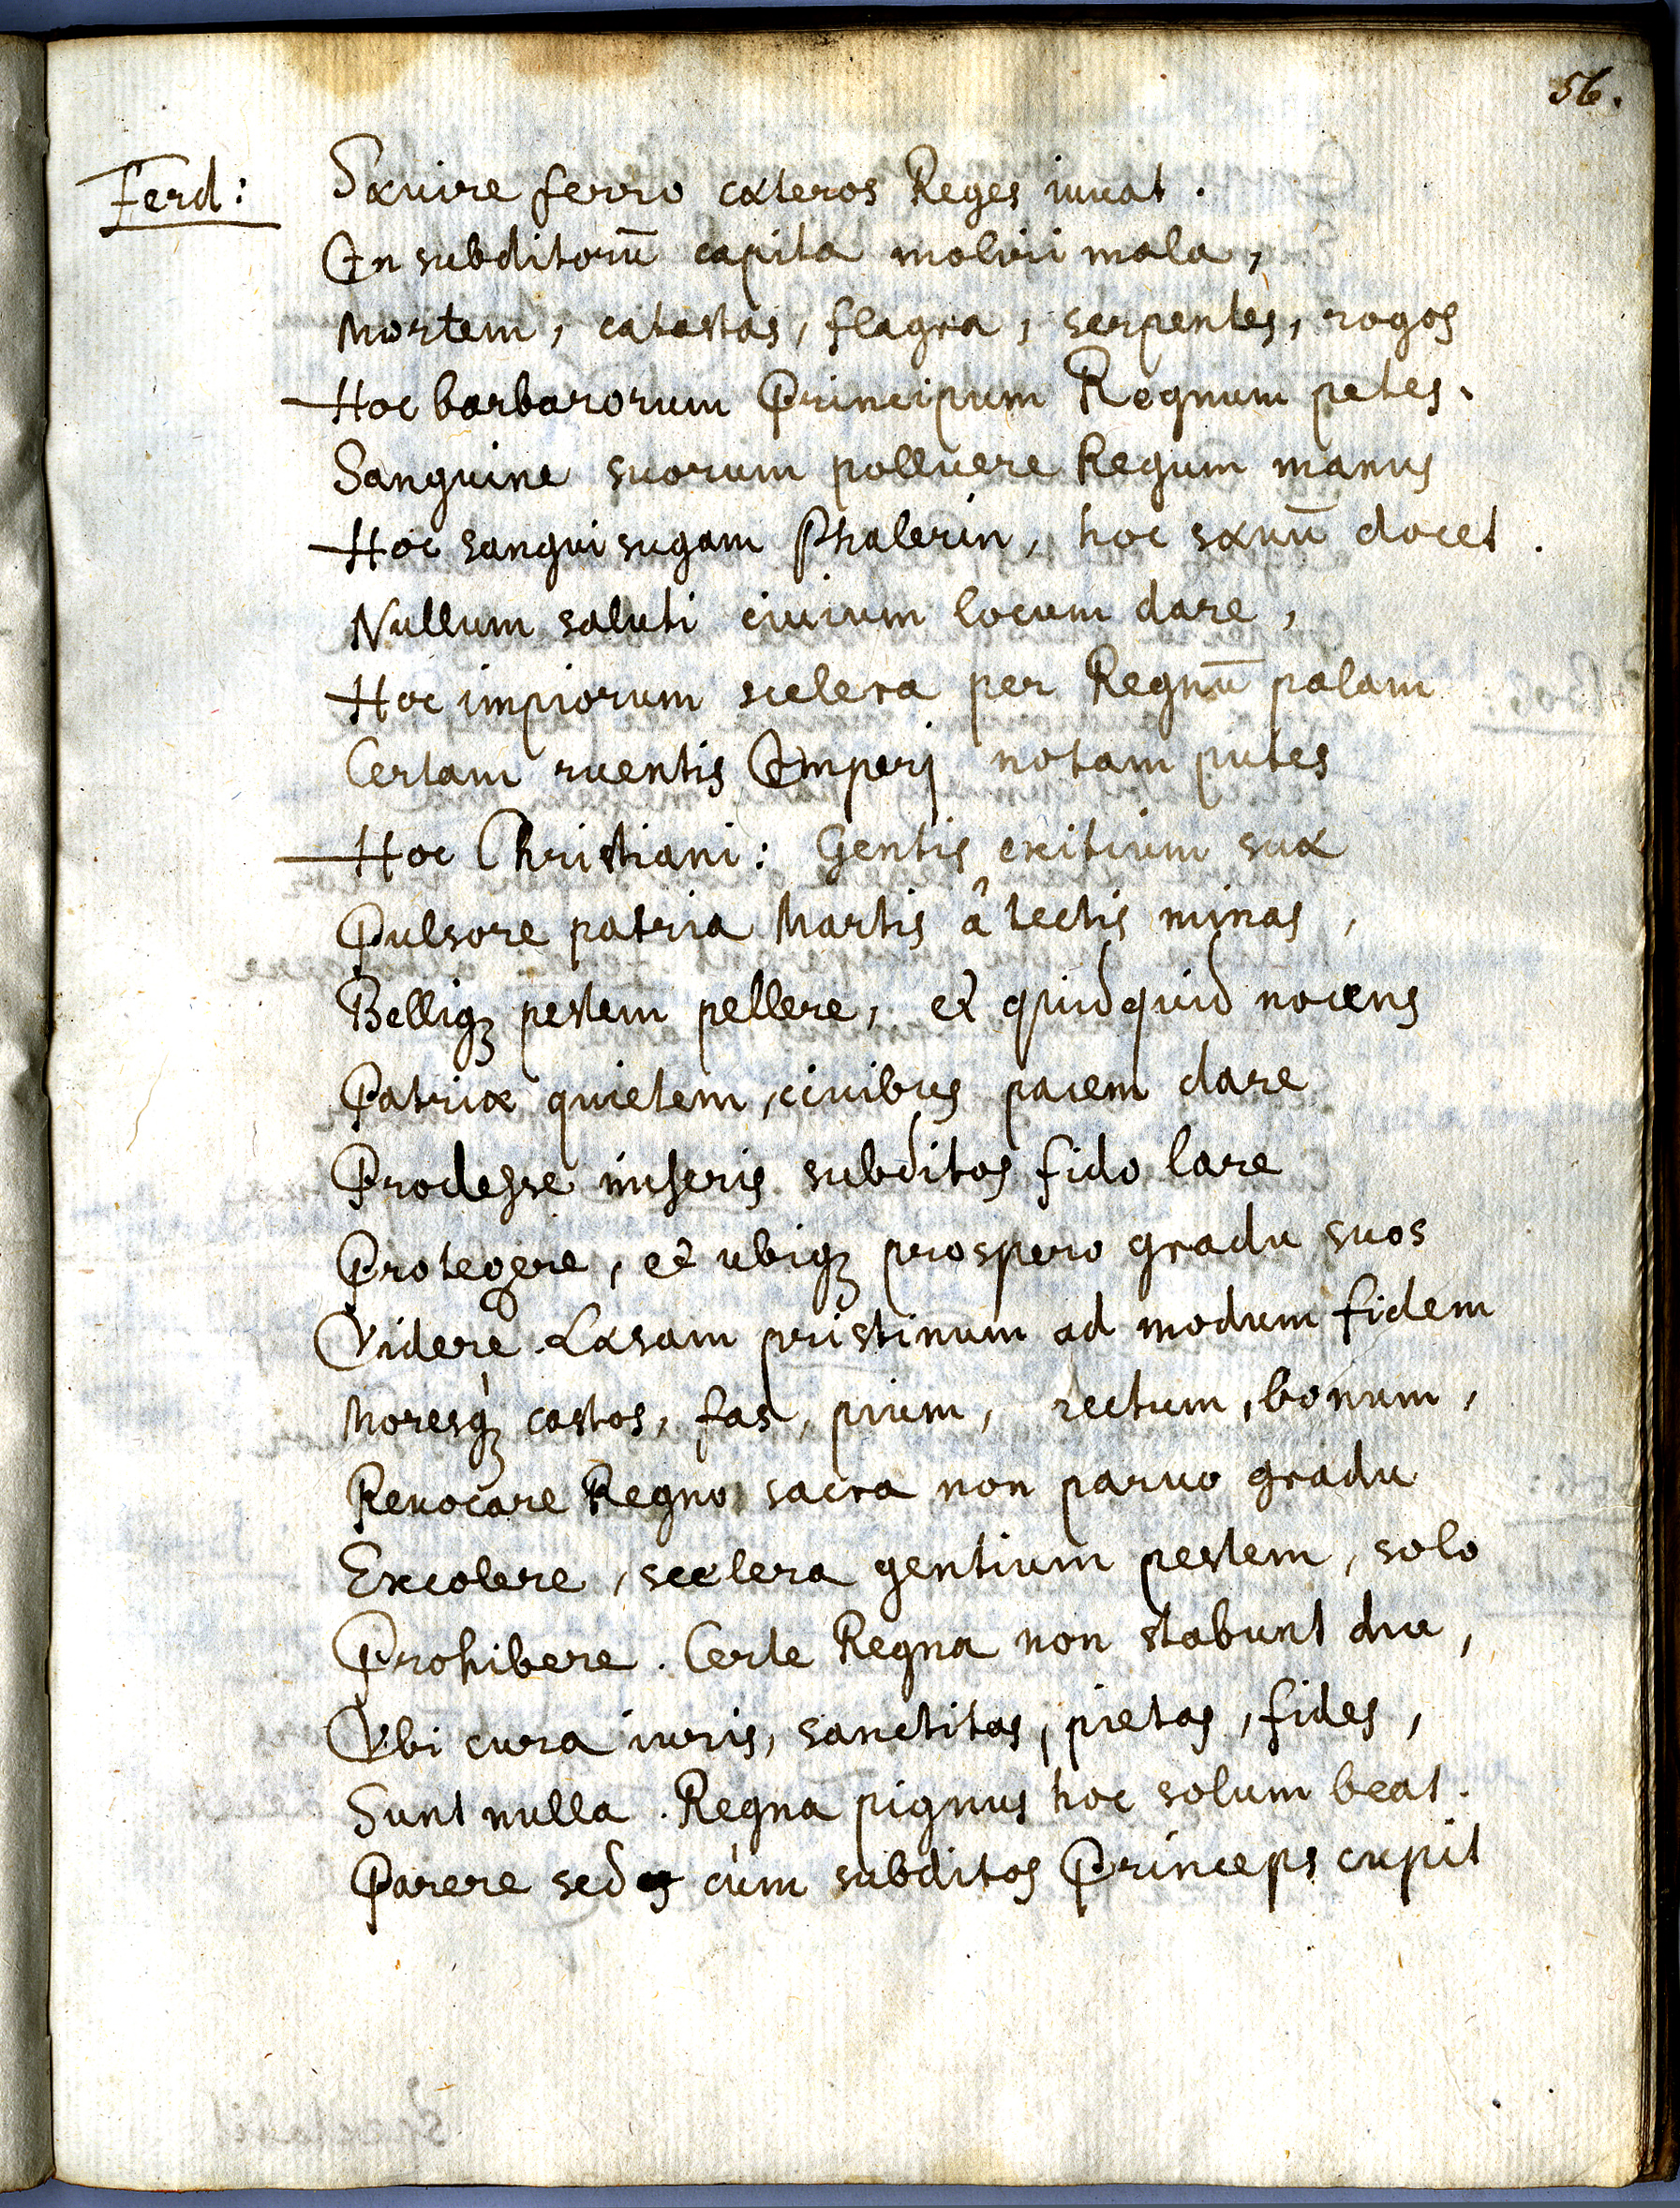 56.
Ferd: Sæuire ferro cæteros Reges iuuat.
In subditorū capita moliri mala,
Mortem, catastas, flagra, serpentes, rogos
Hoc barbarorum Principum Regnum petes.
Sanguine suorum polluere Regum manus
Hoc sanguisugam Phalerin, hoc sæuū docet.
Nullum saluti ciuium locum dare,
Hoc impiorum scelera per Regnū palam
Certam ruentis Imperij notam putes
Hoc Christiani: Gentis exitium suæ
Pulsare patria Martis â tectis minas,
Belliqꝫ pestem pellere, et quidquid nocens
Patriæ quietem, ciuibus pacem dare
Prodesse miseris subditos fido lare
Protegere, et ubiqꝫ prospero gradu suos
Videre. Læsam pristinum ad modum fidem
Moresqꝫ castos, fas, pium, rectum, bonum,
Reuocare Regno sacra non paruo gradu
Excolere, scelera gentium pestem, solo
Prohibere. Certe Regna non stabunt diu,
Vbi cura iuris, sanctitas, pietas, fides,
Sunt nulla. Regna pignus hoc solum beat.
Parere sed cùm subditos Princeps cupit